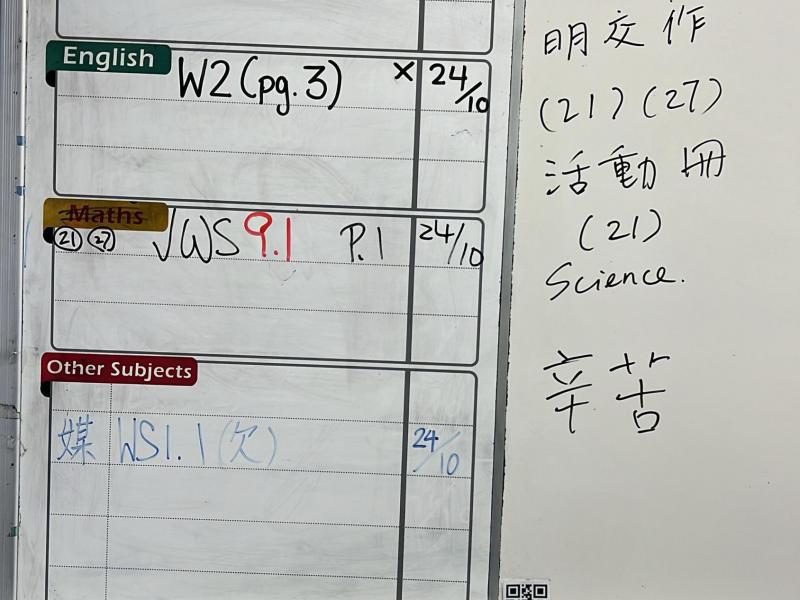 English
W2 (pg.3) × 24/10
Maths
(21) (27) √ WS 9.1 P.1 24/10
Other Subjects
媒 WS1.1 (欠) 24/10
明交作
(21) (27)
活動冊
(21)
Science.
辛苦